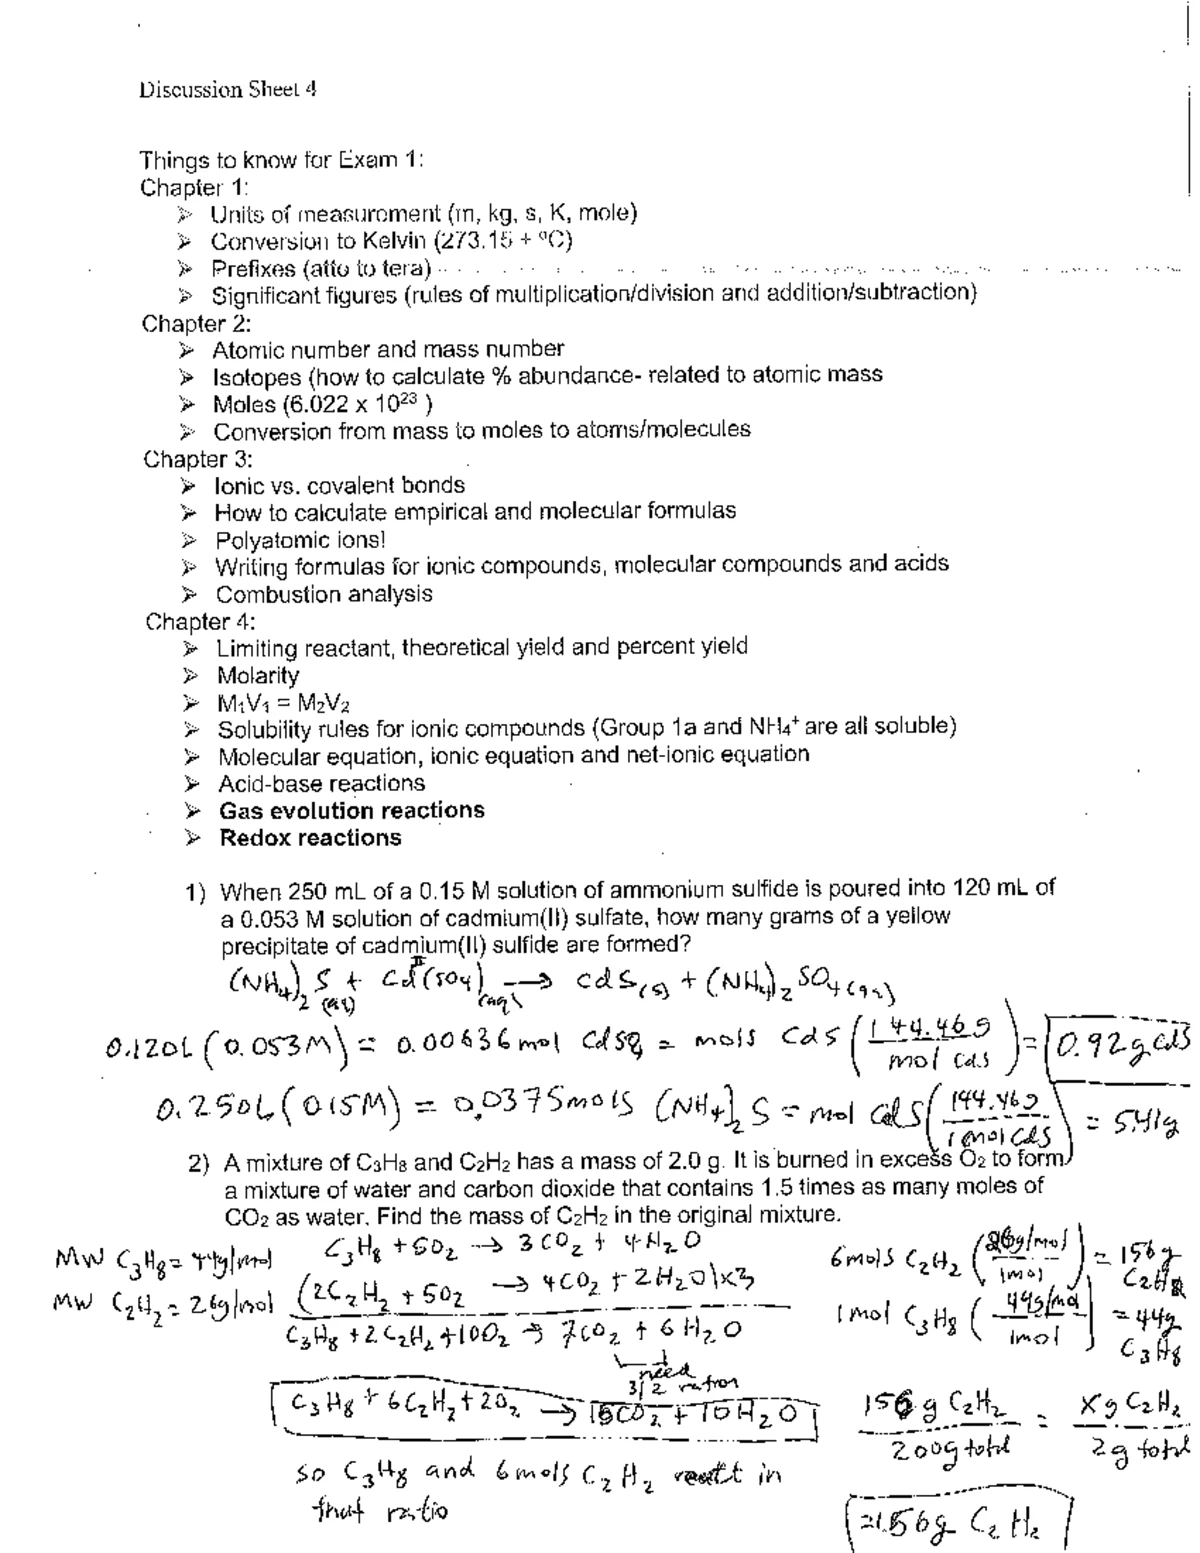 Discussion Sheet 4
Things to know for Exam 1:
Chapter 1:
➢ Units of measurement (m, kg, s, K, mole)
➢ Conversion to Kelvin (273.15 + ºC)
➢ Prefixes (atto to tera)
➢ Significant figures (rules of multiplication/division and addition/subtraction)
Chapter 2:
➢ Atomic number and mass number
➢ Isotopes (how to calculate % abundance- related to atomic mass
➢ Moles (6.022 x 10²³ )
➢ Conversion from mass to moles to atoms/molecules
Chapter 3:
➢ Ionic vs. covalent bonds
➢ How to calculate empirical and molecular formulas
➢ Polyatomic ions!
➢ Writing formulas for ionic compounds, molecular compounds and acids
➢ Combustion analysis
Chapter 4:
➢ Limiting reactant, theoretical yield and percent yield
➢ Molarity
➢ M₁V₁ = M₂V₂
➢ Solubility rules for ionic compounds (Group 1a and NH₄⁺ are all soluble)
➢ Molecular equation, ionic equation and net-ionic equation
➢ Acid-base reactions
➢ Gas evolution reactions
➢ Redox reactions
1) When 250 mL of a 0.15 M solution of ammonium sulfide is poured into 120 mL of
a 0.053 M solution of cadmium(II) sulfate, how many grams of a yellow
precipitate of cadmium(II) sulfide are formed?
(NH₄)₂S (aq) + Cd^II(SO4) (aq) → CdS(s) + (NH₄)₂SO₄(aq)
0.120L (0.053M) = 0.00636 mol CdSO₄ = mols CdS (144.46g / mol CdS) = 0.92g CdS
0.250L (0.15M) = 0.0375 mols (NH₄)₂S = mol CdS (144.46g / 1 mol CdS) = 5.41g
2) A mixture of C₃H₈ and C₂H₂ has a mass of 2.0 g. It is burned in excess O₂ to form
a mixture of water and carbon dioxide that contains 1.5 times as many moles of
CO₂ as water. Find the mass of C₂H₂ in the original mixture.
MW C₃H₈ = 44g/mol
MW C₂H₂ = 26g/mol
C₃H₈ + 5O₂ → 3CO₂ + 4H₂O
(2C₂H₂ + 5O₂ → 4CO₂ + 2H₂O)x3
C₃H₈ + 2C₂H₂ + 10O₂ → 7CO₂ + 6H₂O
need
3/2 ratio
C₃H₈ + 6C₂H₂ + 2O₂ → 15CO₂ + 10H₂O
so C₃H₈ and 6 mols C₂H₂ react in
that ratio
6 mols C₂H₂ (26g/mol / 1mol) = 156g C₂H₂
1 mol C₃H₈ (44g/mol / 1mol) = 44g C₃H₈
156g C₂H₂ / 200g total = Xg C₂H₂ / 2g total
=1.56g C₂H₂